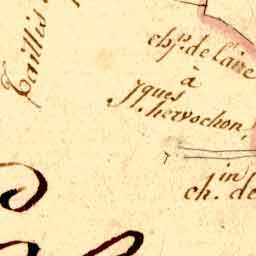 Taillis
chp. de l'aire
à
Jques
hervochon,
chin. de